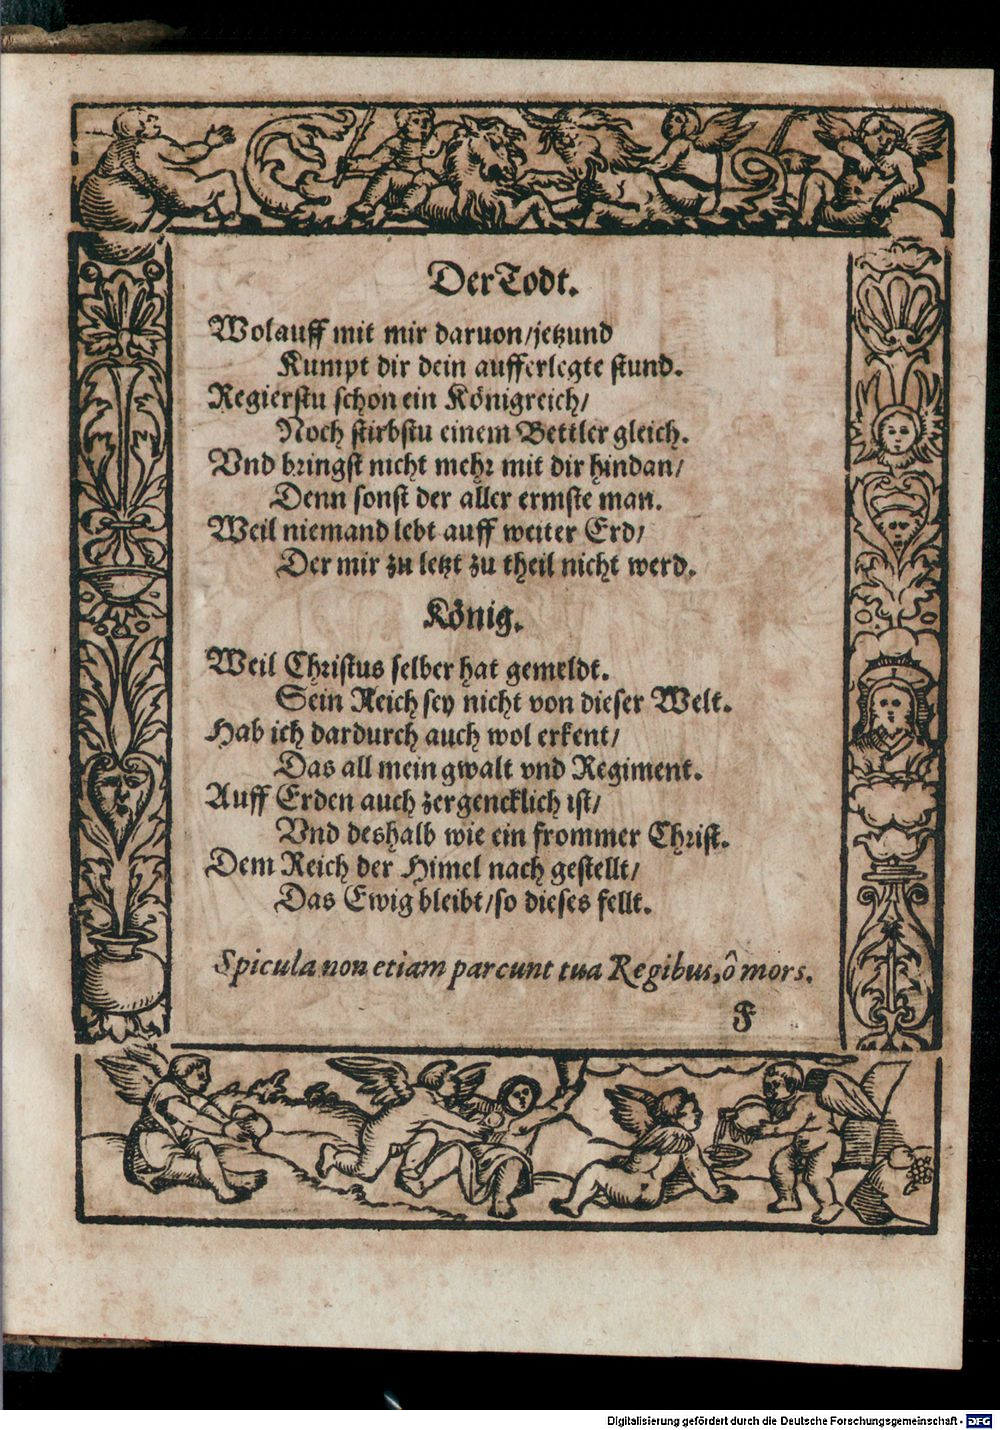 Der Todt.
Wolauff mit mir daruon/jetzund
Kumpt dir dein aufferlegte stund.
Regierstu schon ein Königreich/
Noch stirbstu einem Bettler gleich.
Vnd bringst nicht mehr mit dir hindan/
Denn sonst der aller ermste man.
Weil niemand lebt auff weiter Erd/
Der mir zu letzt zu theil nicht werd.
König.
Weil Christus selber hat gemeldt.
Sein Reich sey nicht von dieser Welt.
Hab ich dardurch auch wol erkent/
Das all mein gwalt vnd Regiment.
Auff Erden auch zergencklich ist/
Vnd deshalb wie ein frommer Christ.
Dem Reich der Himel nach gestellt/
Das Ewig bleibt/so dieses fellt.
Spicula non etiam parcunt tua Regibus, ô mors.
F
Digitalisierung gefördert durch die Deutsche Forschungsgemeinschaft - DFG